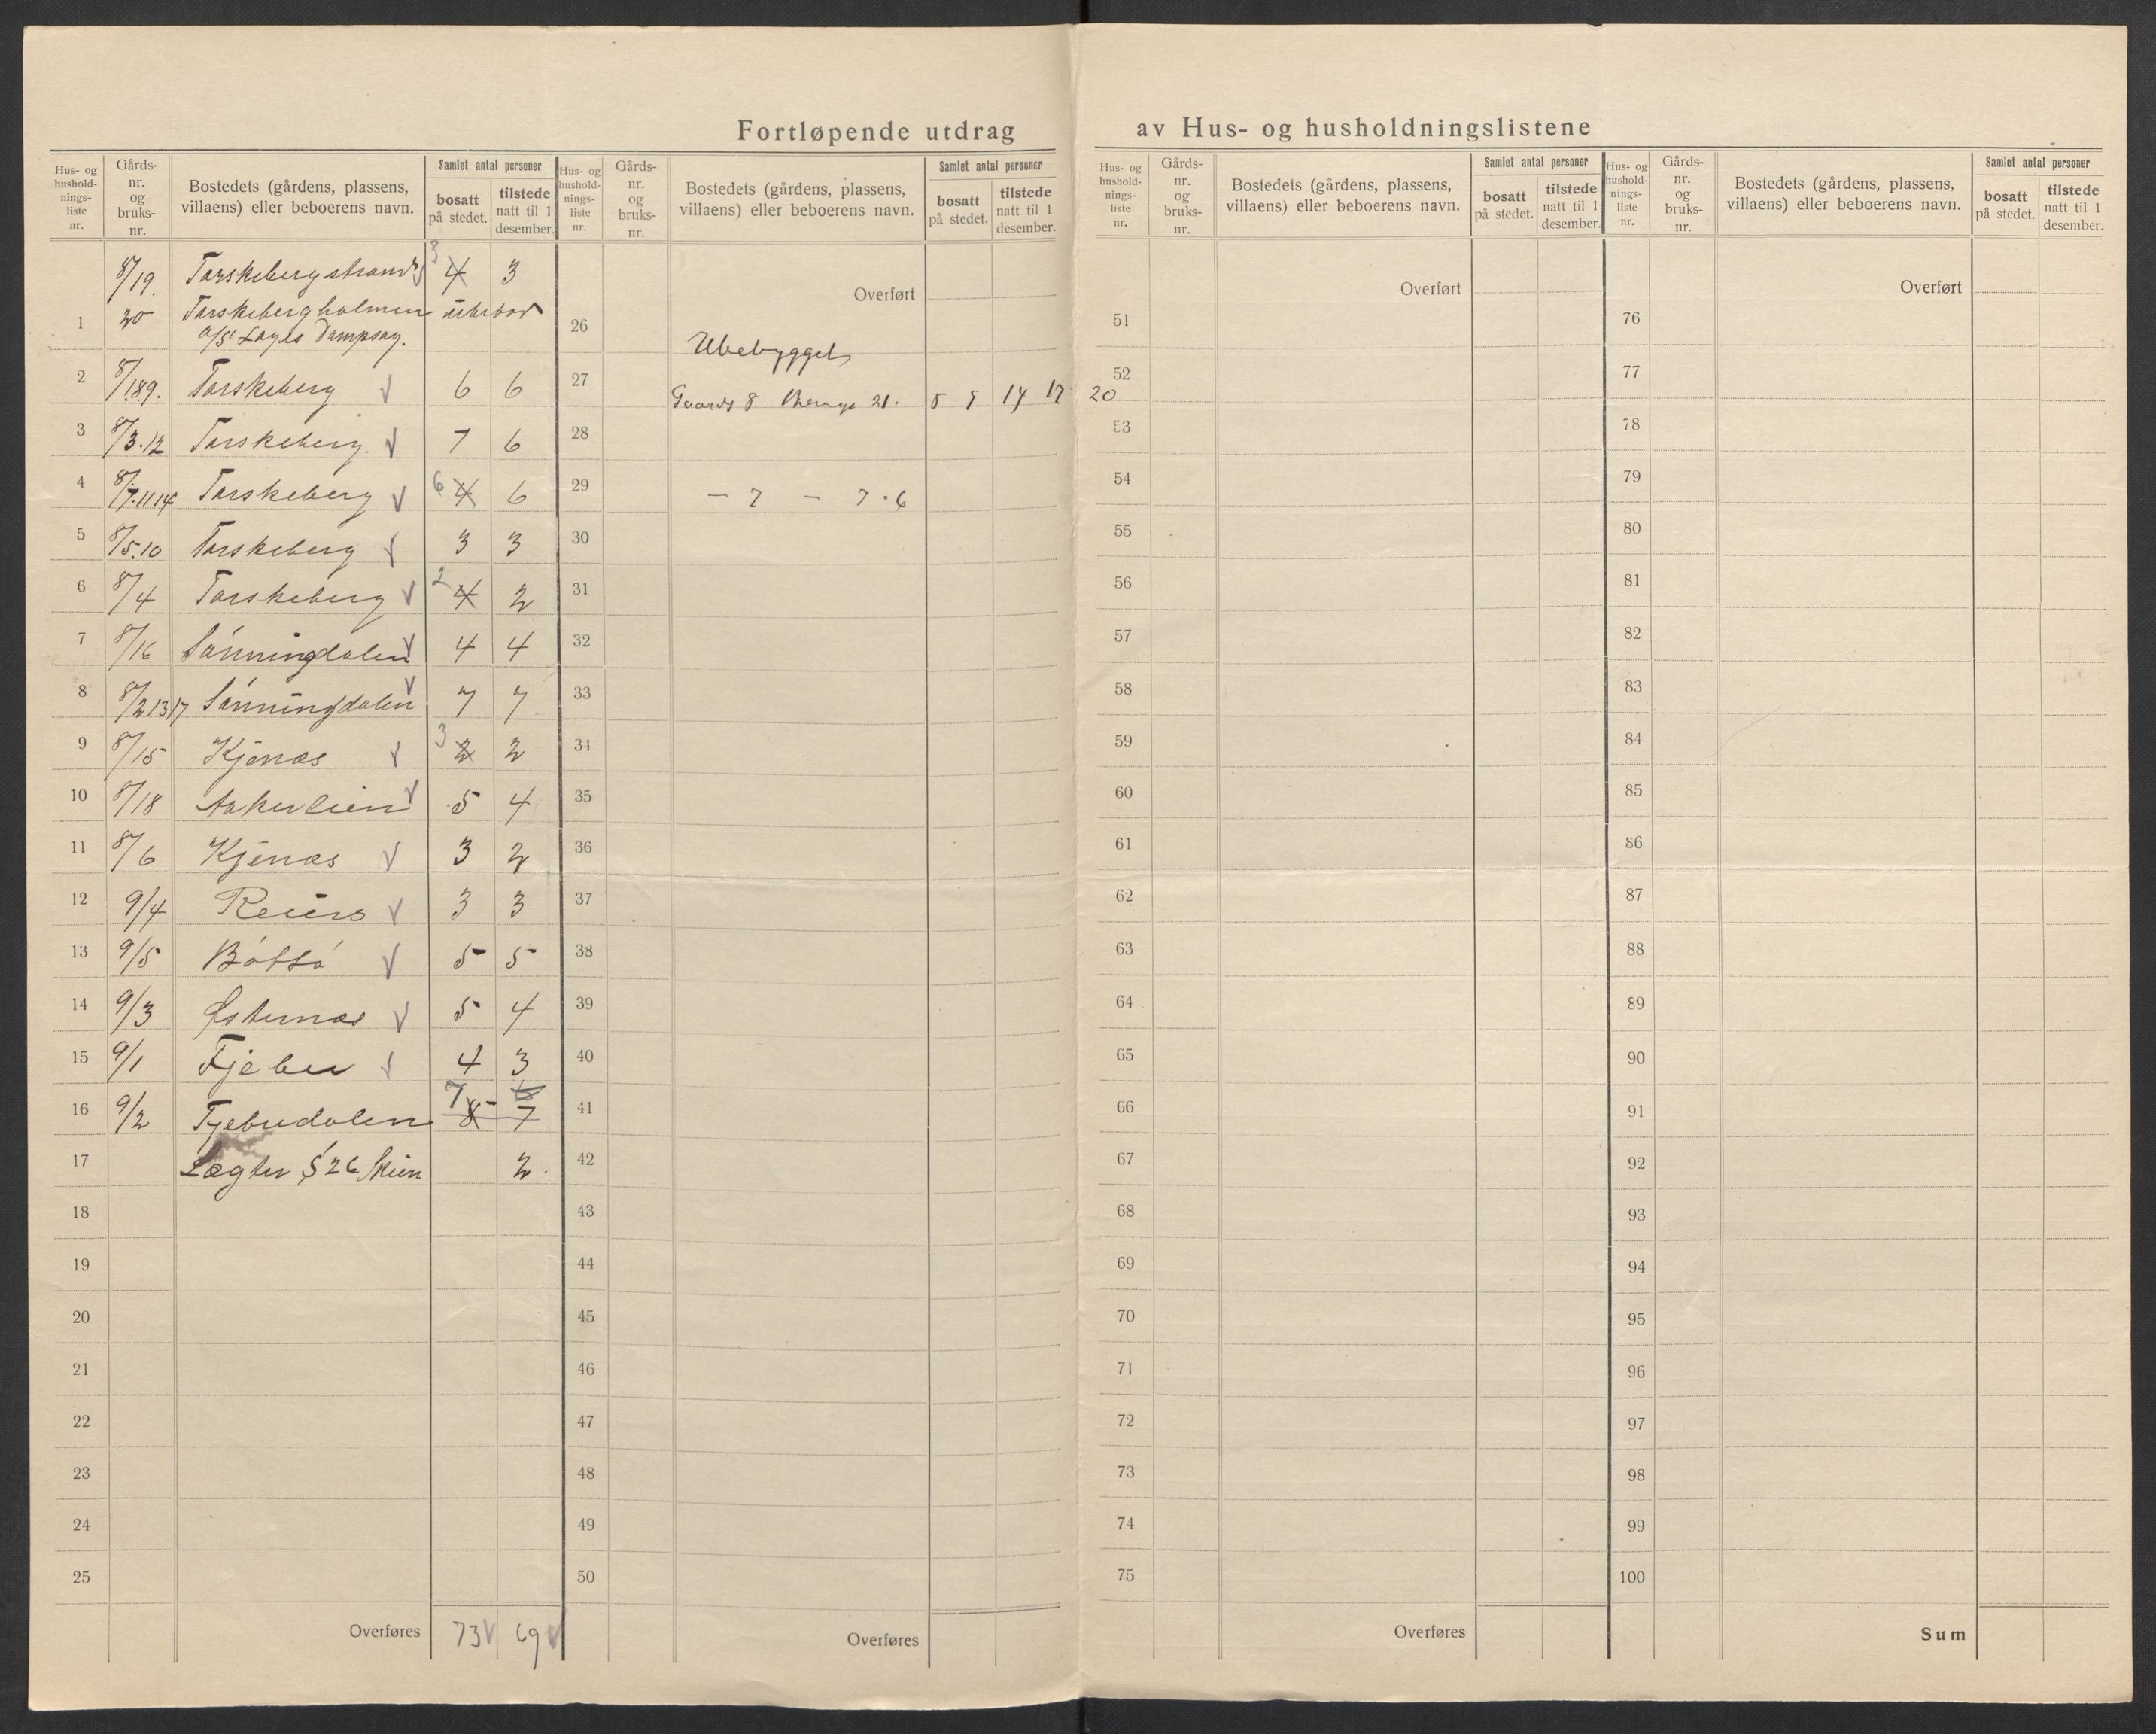 Fortløpende utdrag av Hus- og husholdningslistene
Hus- og hushold-nings-liste nr. Gårds-nr. og bruks-nr. Bostedets (gårdens, plassens, villaens) eller beboerens navn. Samlet antal personer bosatt på stedet. tilstede natt til 1 desember.
8/19. Tarskebergstrand 3 4 3
1 20 Tarskebergholmen ubebod
A/S Dampsag.
2 8/1.8.9. Tarskeberg V 6 6
3 8/3.12 Tarskeberg. V 7 6
4 8/7.11 14 Tarskeberg V 6 4 6
5 8/5.10 Tarskeberg V 3 3
6 8/4 Tarskeberg V 2 4 2
7 8/16 Sønningdalen V 4 4
8 8/2 13 17 Sønningdalen V 7 7
9 8/15 Kjenæs V 3 2 2
10 8/18 Aakerlien V 5 4
11 8/6 Kjenæs V 3 2
12 9/4 V 3 3
13 9/5 V 5 5
14 9/3 Østernæs V 5 4
15 9/1 Fjebu V 4 3
16 9/2 Fjebudalen 7 8 - 6 7
17 Lægter § 26 Skien 2.
18
19
20
21
22
23
24
25
Overføres 73 V 69 V
Hus- og hushold-nings-liste nr. Gårds-nr. og bruks-nr. Bostedets (gårdens, plassens, villaens) eller beboerens navn. Samlet antal personer bosatt på stedet. tilstede natt til 1 desember.
Overført
26
Ubebygget
27 Gaards 8 21. 14 17 20
28
29 — 7 — 7.6
30
31
32
33
34
35
36
37
38
39
40
41
42
43
44
45
46
47
48
49
50
Overføres
Hus- og hushold-nings-liste nr. Gårds-nr. og bruks-nr. Bostedets (gårdens, plassens, villaens) eller beboerens navn. Samlet antal personer bosatt på stedet. tilstede natt til 1 desember.
Overført
51
52
53
54
55
56
57
58
59
60
61
62
63
64
65
66
67
68
69
70
71
72
73
74
75
Overføres
Hus- og hushold-nings-liste nr. Gårds-nr. og bruks-nr. Bostedets (gårdens, plassens, villaens) eller beboerens navn. Samlet antal personer bosatt på stedet. tilstede natt til 1 desember.
Overført
76
77
78
79
80
81
82
83
84
85
86
87
88
89
90
91
92
93
94
95
96
97
98
99
100
Sum